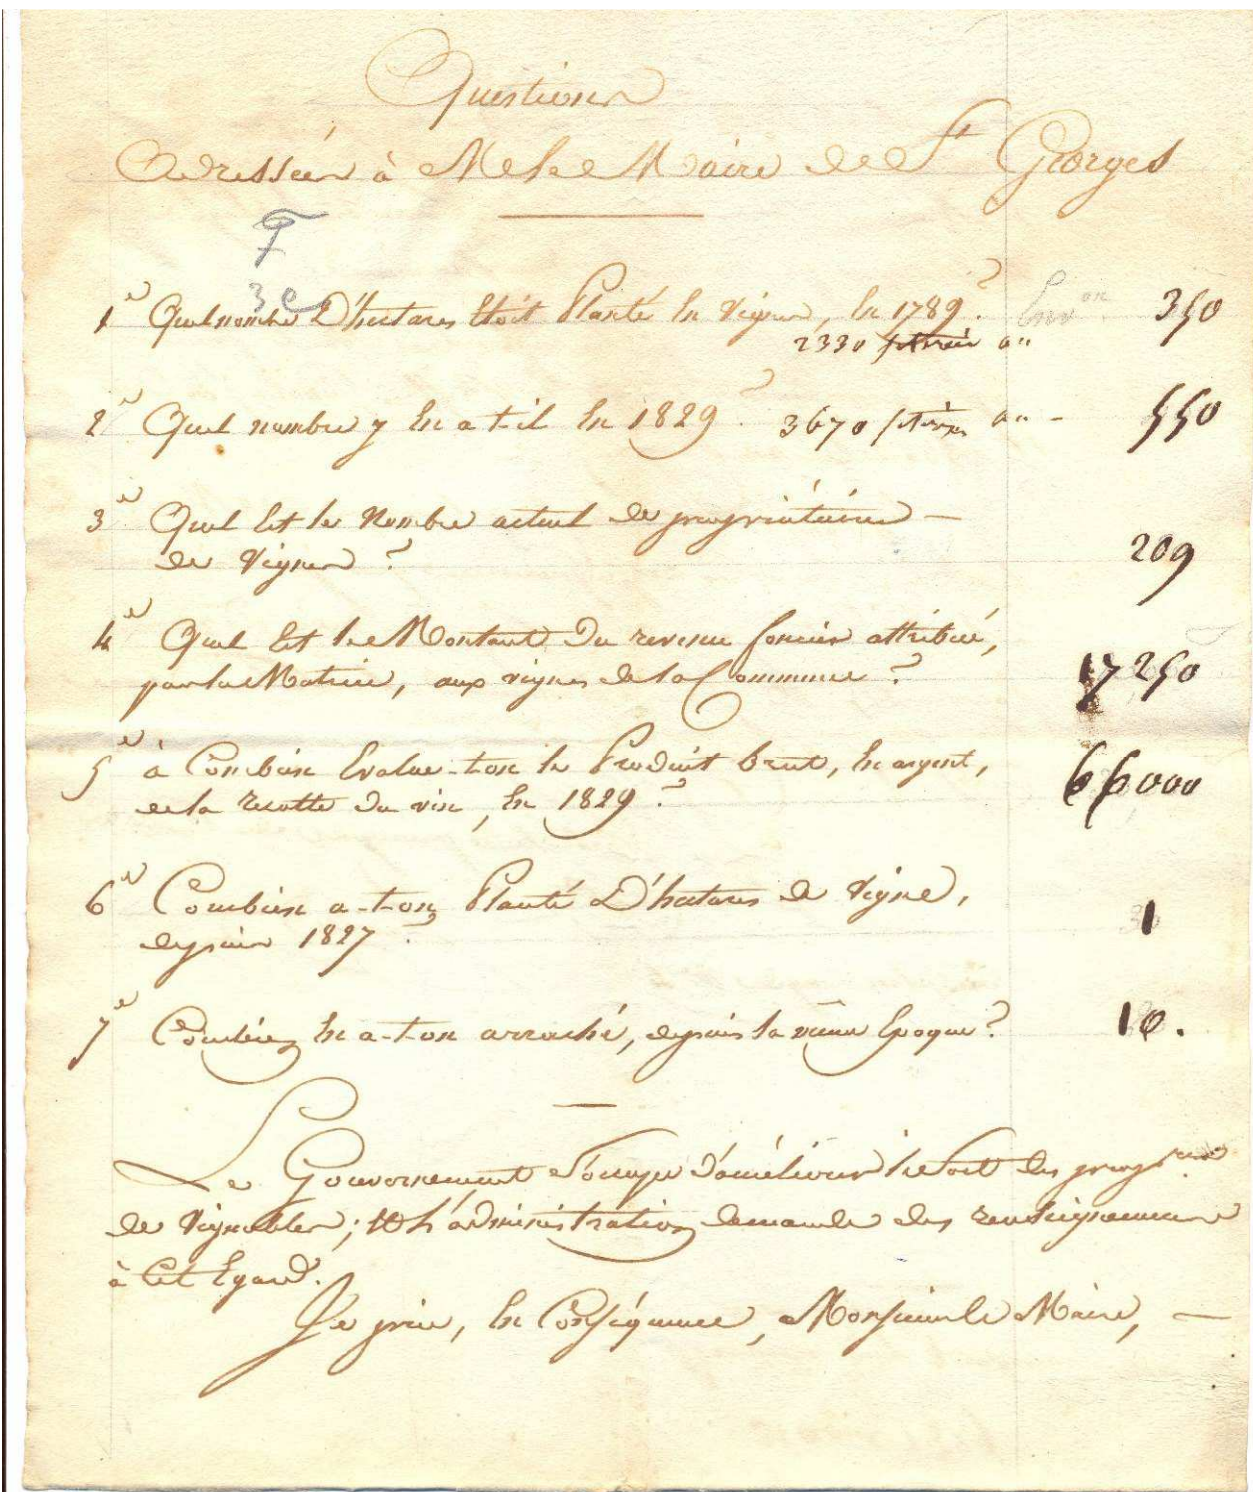 Questions
Adressées à M. le Maire de St Georges
F
3e
1e Quel nombre D'hectares Etoit Planté En Vignes, En 1789? Env.on 350
2330 a..
2e Quel nombre y En a-t-il En 1829? 3670 a.. - 550
3e Quel Est le Nombre actuel de propriétaires —
de Vignes? 209
4e Quel Est le Montant Du revenu foncier attribué,
par la Matrice, aux vignes de la Commune? 17250
5e à Combien Evalue-t-on le Produit brut, En argent,
de la recolte Du vin, En 1829? 66000
6e Combien a-t-on Planté D'hectares de Vigne,
depuis 1827? 1
7e Combien En a-t-on arraché, depuis la même Epoque? 10.
Le Gouvernement s'occupe D'améliorer le Sort des prop.res
de Vignobles; Et L'administration demande des renseignemens
à Cet Egard.
Je prie, En Conséquence, Monsieur le Maire, —